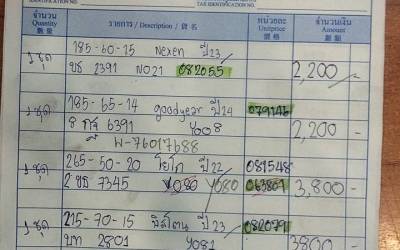 IDENTIFICATION NO.
TAX IDENTIFICATION NO.
จำนวน รายการ / Description / 貨名 หน่วยละ จำนวนเงิน
Quantity Unitprice Amount
數量 單價 金額
1 ชุด 185-60-15 Nexen ปี23
ขธ 2391 NO21 082055 2,200 -
1 ชุด 185-65-14 goodyear ปี24 079146
8 กจ 6391 4008 2,200 -
W-76017688
1 ชุด 265-50-20 โยโก ปี22 081548
2 ขธ 7345 Y080 063807 3,800 -
1 ชุด 215-70-15 ปี23 082079
2801 Y081 3800 -